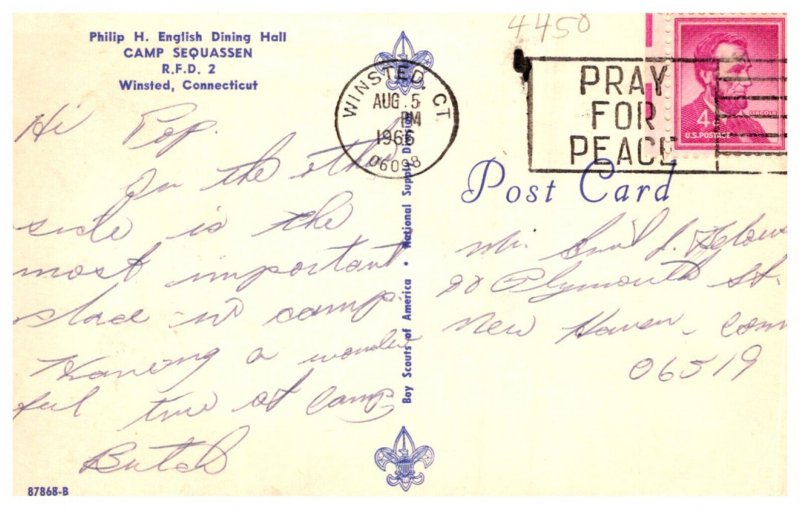 Philip H. English Dining Hall
CAMP SEQUASSEN
R.F.D. 2
Winsted, Connecticut
Hi Pop.
On the other
side is the
most important
place in camp.
Having a wonder
ful time at Camp
Butch
87868-B
Boy Scouts of America • National Supply Division
4450
WINSTED, CT
AUG 5
PM
1966
06098
PRAY
FOR
PEACE
4¢
U.S. POSTAGE
Post Card
Mr. L.
80 Plymouth St.
New Haven, Conn
06519